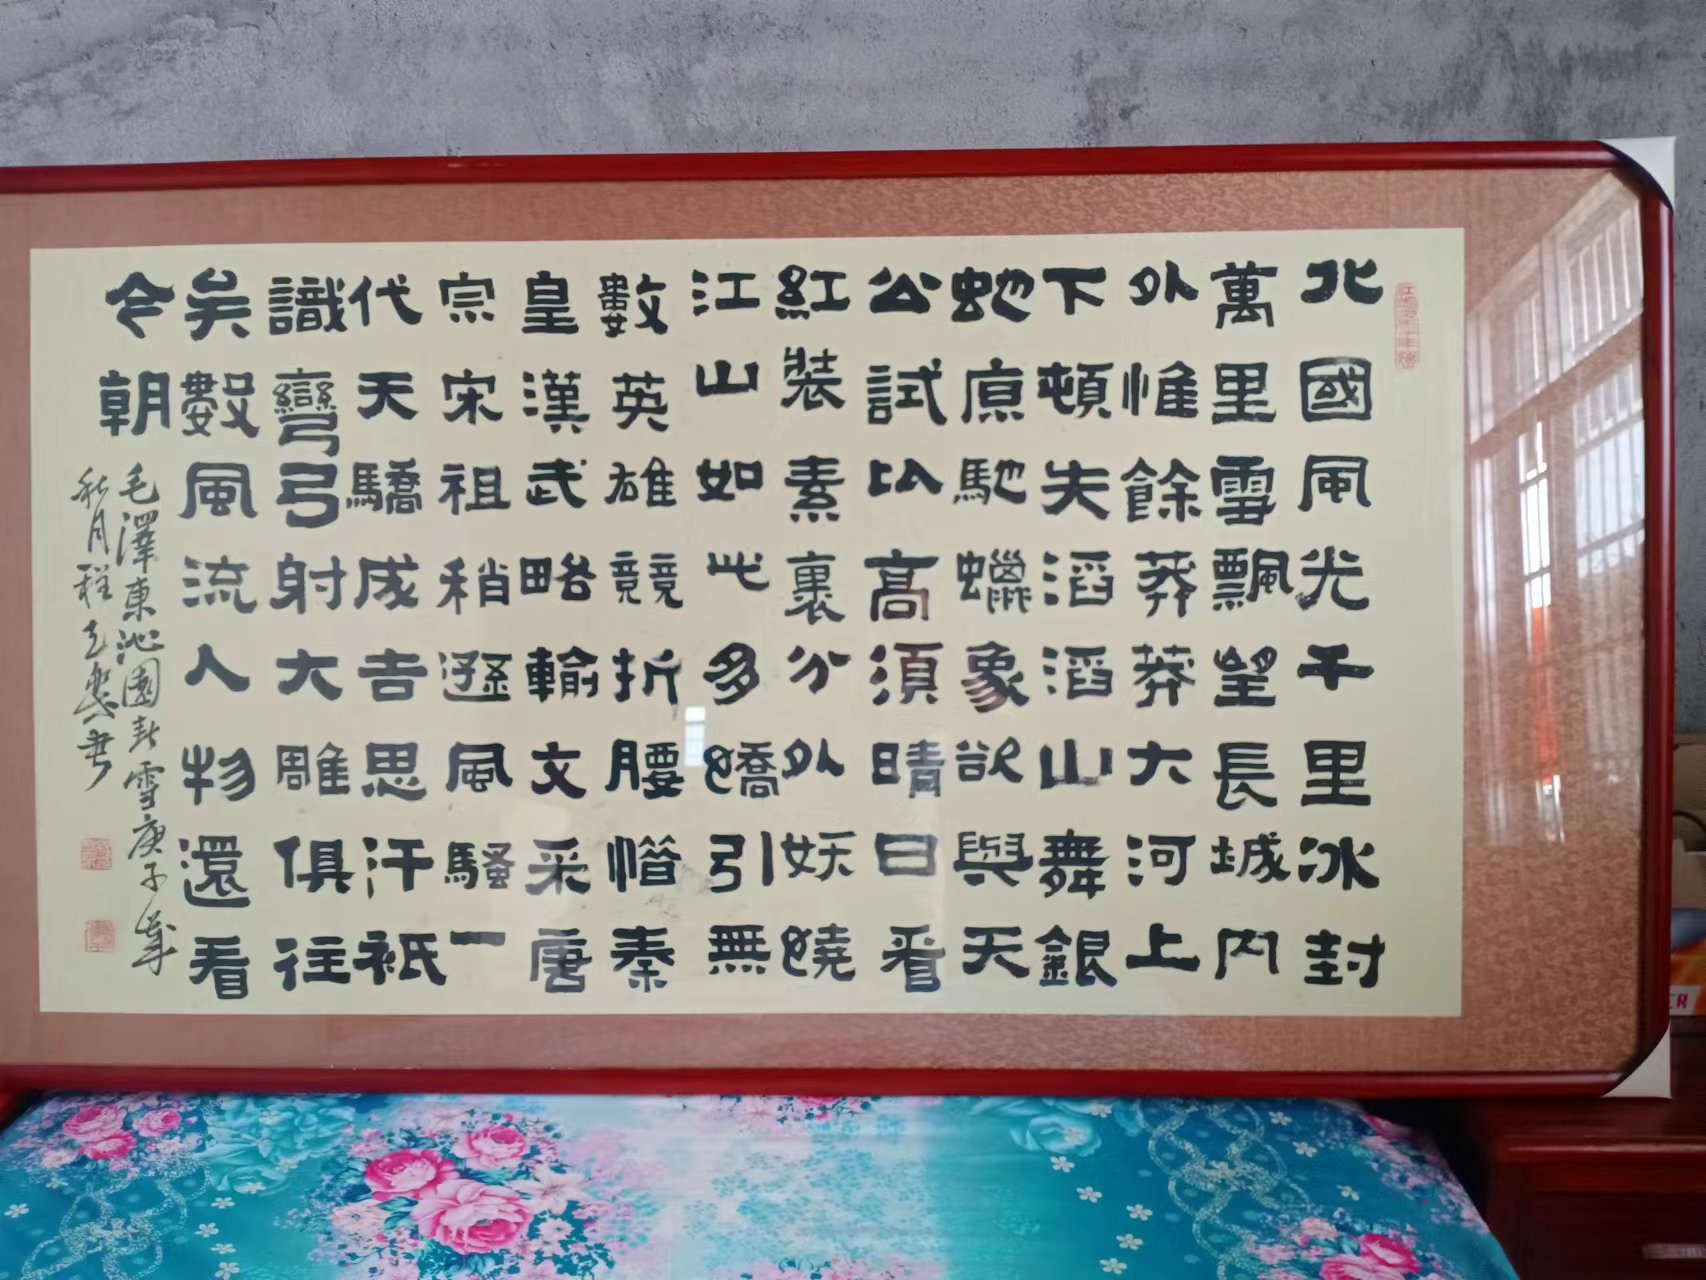 北國風光千里冰封
萬里雪飄望長城内
外惟餘莽莽大河上
下頓失滔滔山舞銀
蛇原馳蠟象欲與天
公試比高須晴日看
紅裝素裹分外妖嬈
江山如此多嬌引無
數英雄競折腰惜秦
皇漢武略輸文采唐
宗宋祖稍遜風騷一
代天驕成吉思汗祇
識彎弓射大雕俱往
矣數風流人物還看
今朝
毛澤東沁園春雪庚子年
秋月程書